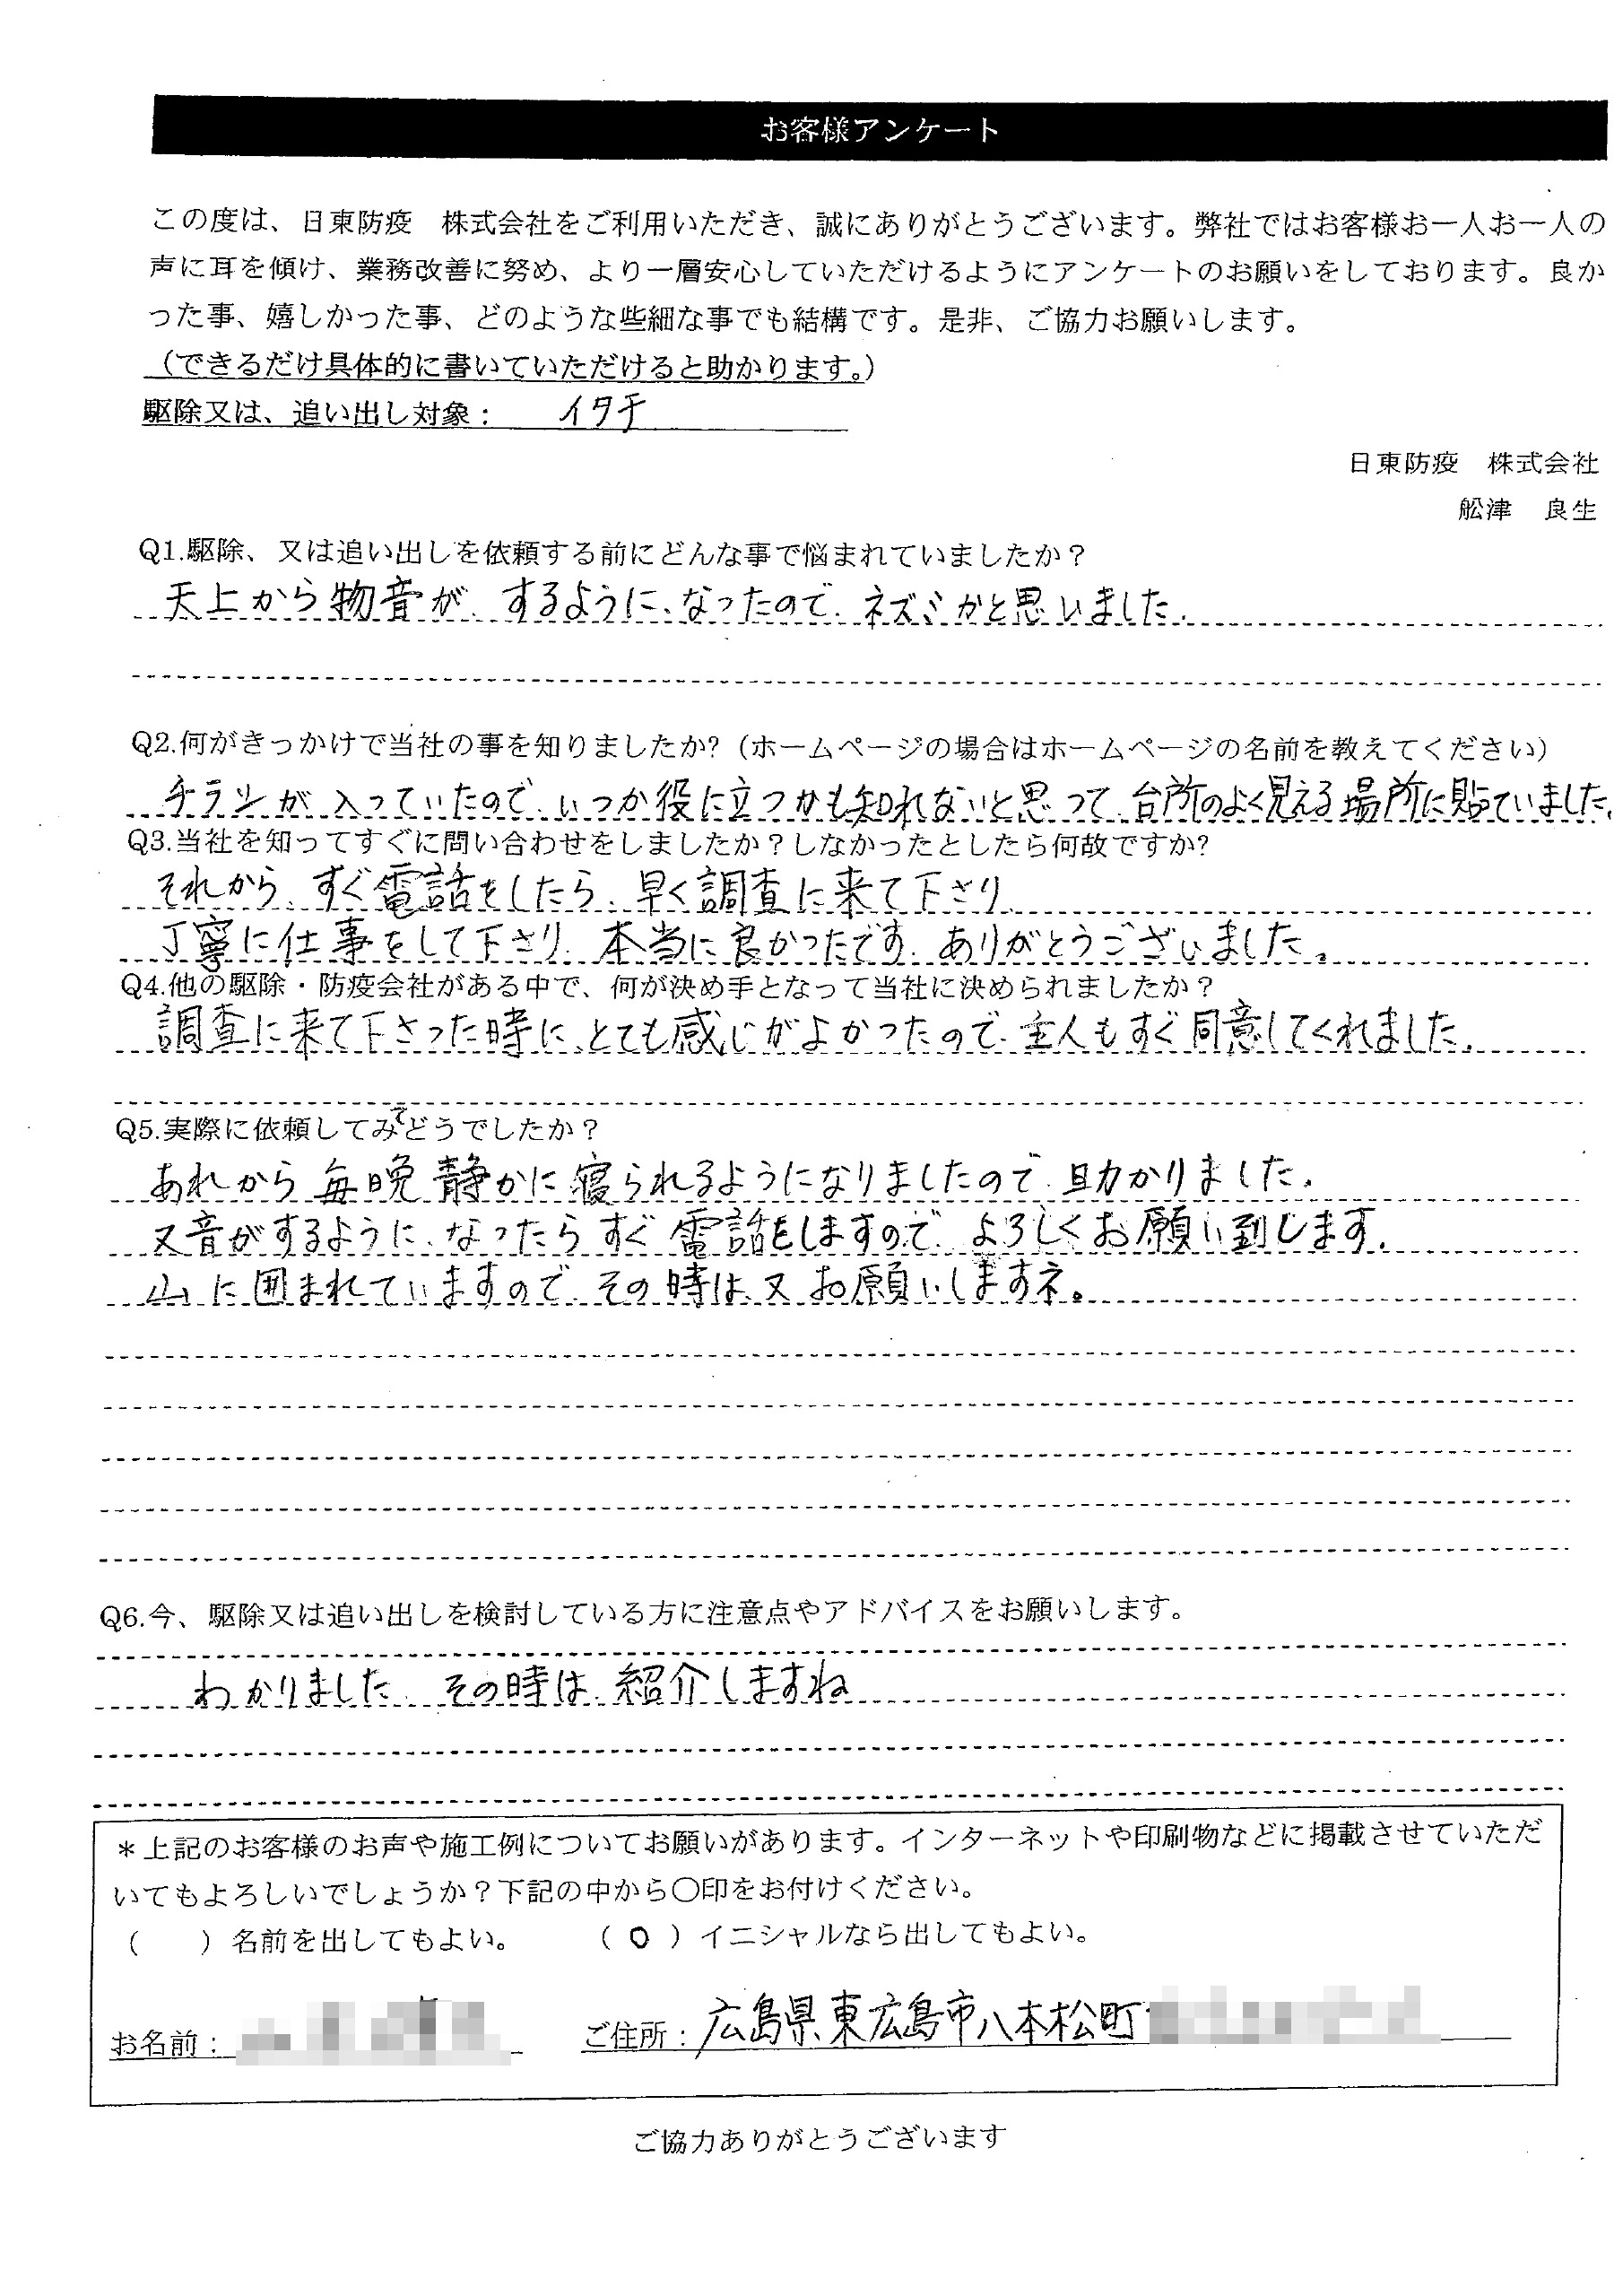 お客様アンケート
この度は、日東防疫　株式会社をご利用いただき、誠にありがとうございます。弊社ではお客様お一人お一人の
声に耳を傾け、業務改善に努め、より一層安心していただけるようにアンケートのお願いをしております。良か
った事、嬉しかった事、どのような些細な事でも結構です。是非、ご協力お願いします。
（できるだけ具体的に書いていただけると助かります。）
駆除又は、追い出し対象：　イタチ
日東防疫　株式会社
舩津　良生
Q1.駆除、又は追い出しを依頼する前にどんな事で悩まれていましたか？
天上から物音が、するように、なったので、ネズミかと思いました.
Q2.何がきっかけで当社の事を知りましたか?（ホームページの場合はホームページの名前を教えてください）
チラシが入っていたので、いつか役に立つかも知れないと思って、台所のよく見える場所に貼ていました.
Q3.当社を知ってすぐに問い合わせをしましたか？しなかったとしたら何故ですか?
それから、すぐ電話をしたら、早く調査に来て下さり
丁寧に仕事をして下さり、本当に良かったです、ありがとうございました。
Q4.他の駆除・防疫会社がある中で、何が決め手となって当社に決められましたか？
調査に来て下さった時に、とても感じがよかったので、主人もすぐ同意してくれました.
Q5.実際に依頼してみてどうでしたか？
あれから毎晩静かに寝られるようになりましたので、助かりました.
又音がするように、なったらすぐ電話をしますので、よろしくお願い到します.
山に囲まれていますので、その時は、又お願いしますネ。
Q6.今、駆除又は追い出しを検討している方に注意点やアドバイスをお願いします。
わかりました、その時は、紹介しますね
＊上記のお客様のお声や施工例についてお願いがあります。インターネットや印刷物などに掲載させていただ
いてもよろしいでしょうか？下記の中から〇印をお付けください。
（　　）名前を出してもよい。　（ O ）イニシャルなら出してもよい。
お名前：　ご住所：広島県東広島市八本松町
ご協力ありがとうございます